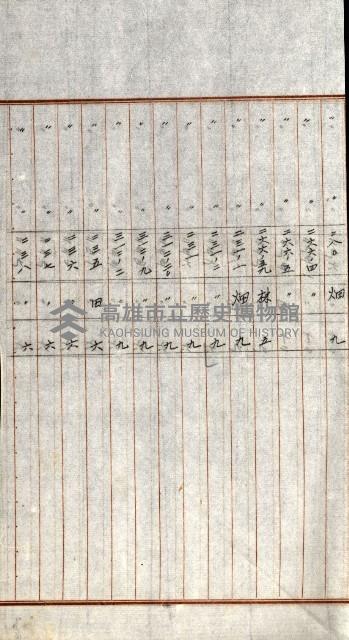 二八〇 畑 九
〃 〃 二六六ノ四 〃
〃 〃 二六六ノ五 〃
〃 〃 林 五
〃 〃 二三一ノ一 畑 九
〃 〃 二三一ノ二 〃 九
〃 〃 〃 九
〃 〃 〃 九
〃 〃 〃 九
〃 〃 三一二ノ二 〃 九
〃 〃 二三五 田 六
〃 〃 二三六 〃 六
〃 〃 二三七 〃 六
〃 〃 二三八 〃 六
高雄市立歷史博物館
KAOHSIUNG MUSEUM OF HISTORY